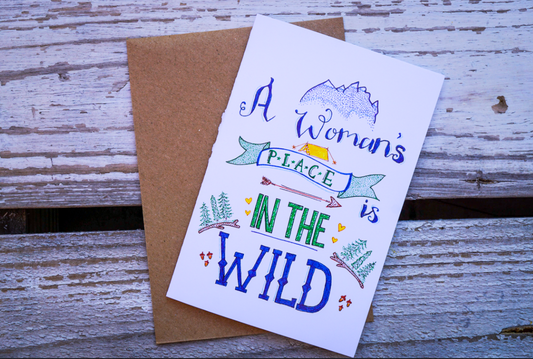 A
Woman's
P·L·A·C·E
is
IN THE
WILD